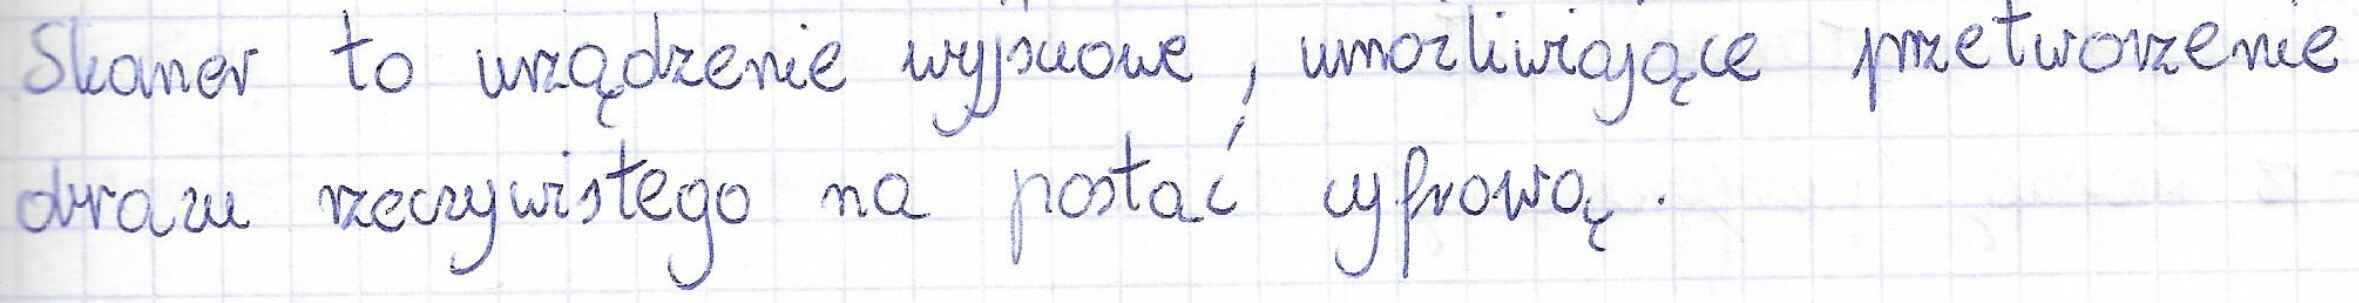 Skaner to urządzenie wyjściowe, umożliwiające przetworzenie
obrazu rzeczywistego na postać cyfrową.